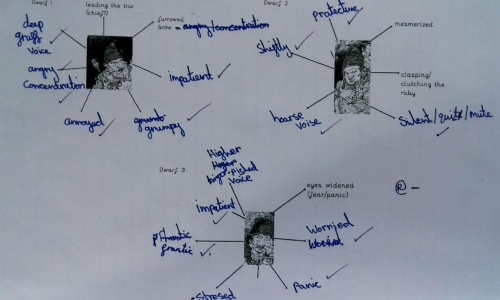 Dwarf 1
leading the trio
(chief?)
deep
gruff
voice
furrowed
brow - angry/concentration
angry
concentration
impatient
annoyed
grumpy
Dwarf 2
protective
mesmerized
shiftly
clasping/
clutching the
ruby
hoarse
voice
Silent/quiet/mute
Dwarf 3
Higher
voice
eyes widened
(fear/panic)
impatient
frantic
Worried
worried
stressed
panic